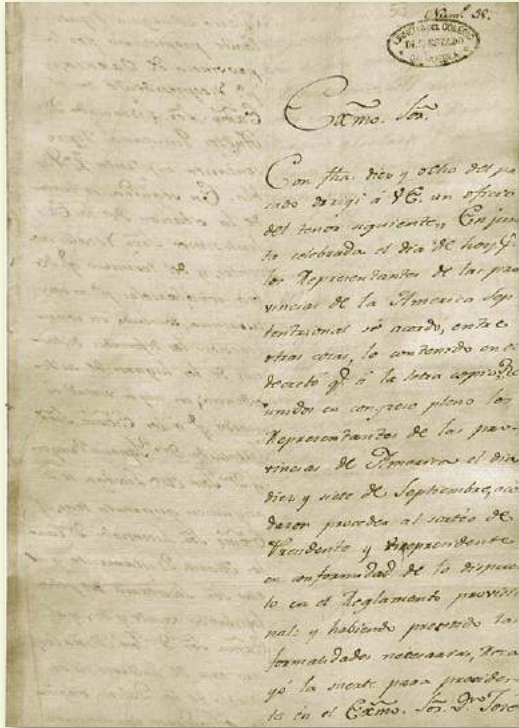 Numº 38.
SECRETARIA DEL
DE ESTADO
Exmo. Sor.
Con fha. diez y ocho del pa
sado dirigi á VE. un oficio
del tenor siguiente,, En jun
ta celebrada el dia de hoy pr.
los Representantes de las pro
vincias de la America Sep
tentrional se acordó, entre
otras cosas, lo contenido en el
decreto qe. á la letra copio. Re
unidos en congreso pleno los
Representantes de las pro-
vincias de America el dia
diez y siete de Septiembre, acor
daron proceder al sorteo de
Presidente y vicepresidente
en conformidad de lo dispues
to en el Reglamento provisio
nal: y habiendo precedido las
formalidades necesarias, Reca
yó la suerte para presiden
te en el Exmo. Sor. Dn. José